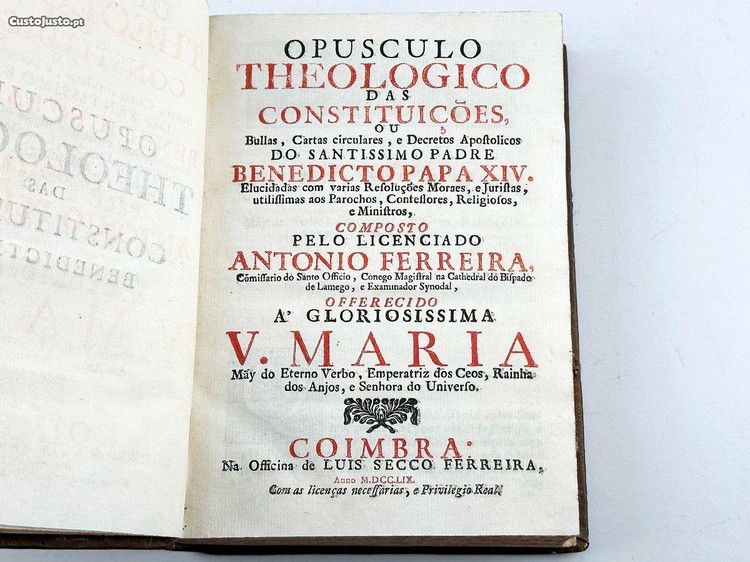 CustoJusto.pt
OPUSCULO
THEOLOGICO
DAS
CONSTITUICÕES,
OU
Bullas, Cartas circulares, e Decretos Apoſtolicos
DO SANTISSIMO PADRE
BENEDICTO PAPA XIV.
Elucidadas com varias Reſoluções Moraes, e Juriſtas,
utiliſſimas aos Parochos, Confeſſores, Religioſos,
e Miniſtros,
COMPOSTO
PELO LICENCIADO
ANTONIO FERREIRA,
Cõmiſſario do Santo Officio, Conego Magiſtral na Cathedral do Biſpado
de Lamego, e Examinador Synodal,
OFFERECIDO
A' GLORIOSISSIMA
V. MARIA
Mãy do Eterno Verbo, Emperatriz dos Ceos, Rainha
dos Anjos, e Senhora do Univerſo.
COIMBRA:
Na Officina de LUIS SECCO FERREIRA,
Anno M.DCC.LIX.
Com as licenças neceſſarias, e Privilegio Real